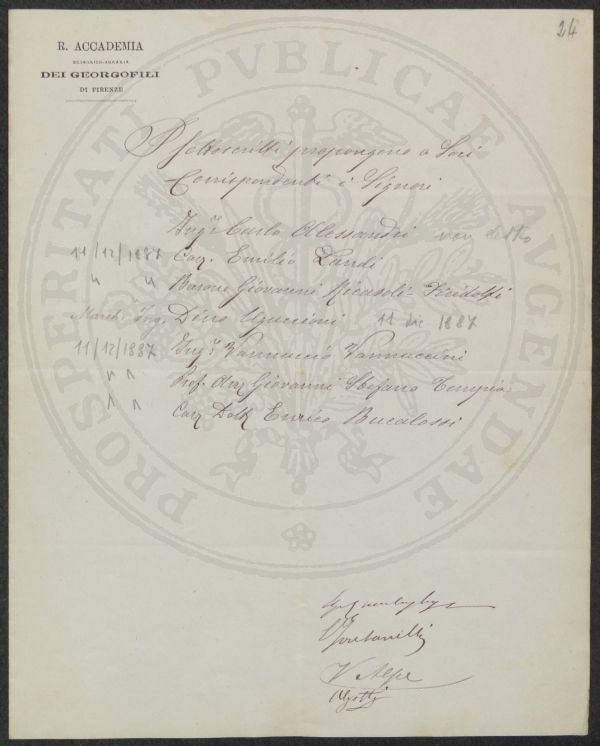 24
R. ACCADEMIA
ECONOMICO-AGRARIA
DEI GEORGOFILI
DI FIRENZE
PROSPERITATI PUBLICAE AUGENDAE
I sottoscritti propongono a Soci
Corrispondenti i Signori
Ingr Carlo Alessandri non eletto
11/12/1887 Cav. Emilio Landi
" " Barone Giovanni Ricasoli-Firidolfi
March. Ing. Dino Uguccioni 11 dic 1887
11/12/1887 Ingr Vannuccio Vannuccini
" " Prof. Giovanni Stefano Tempia
" " Cav. Dott. Enrico Bucalossi
V. Alpe